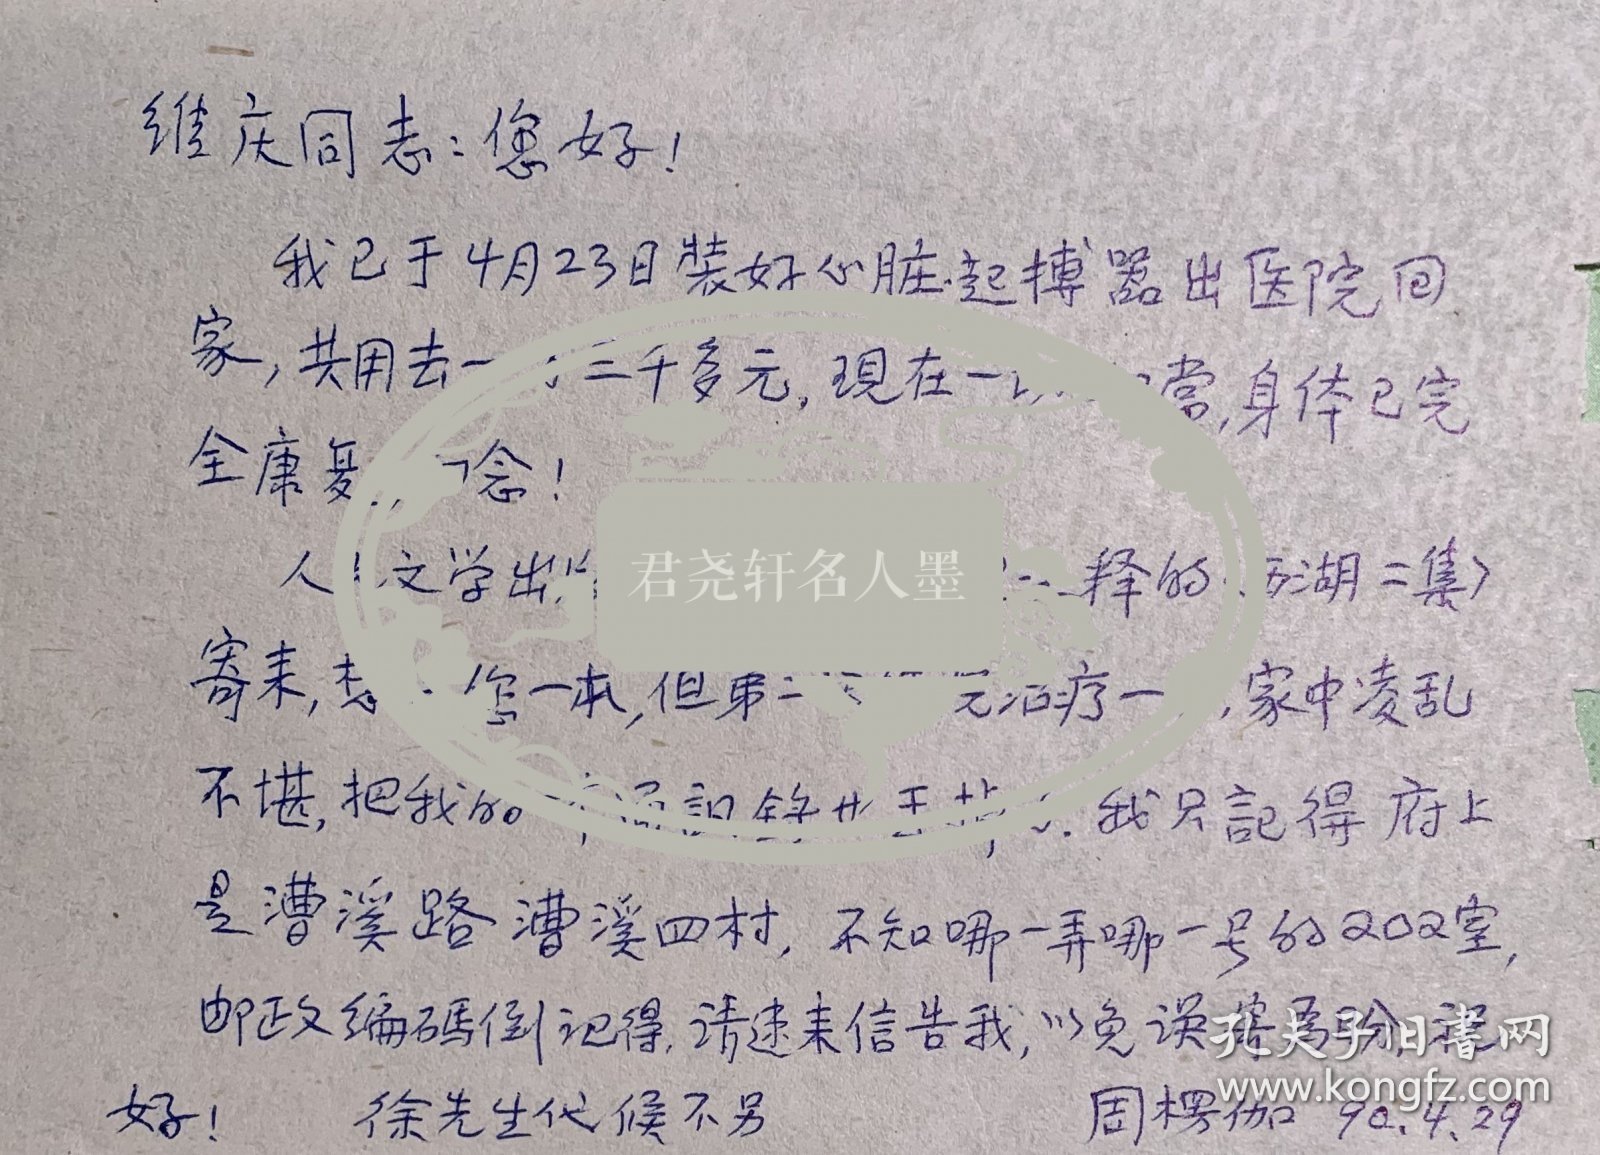 维庆同志：您好！
我已于4月23日装好心脏起搏器出医院回
家，共用去一 二千多元，現在一 常，身体已完
全康复， 念！
人 文学出 择的 湖二集〉
寄来， 您一本，但第二 治疗一 ，家中凌乱
不堪，把我的 我只記得府上
是漕溪路漕溪四村，不知哪一弄哪一号的202室，
邮政编碼倒记得，请速来信告我，以免误寄为盼，祝
好！ 徐先生代候不另 周楞伽 90.4.29
君尧轩名人墨
孔夫子旧書网
www.kongfz.com